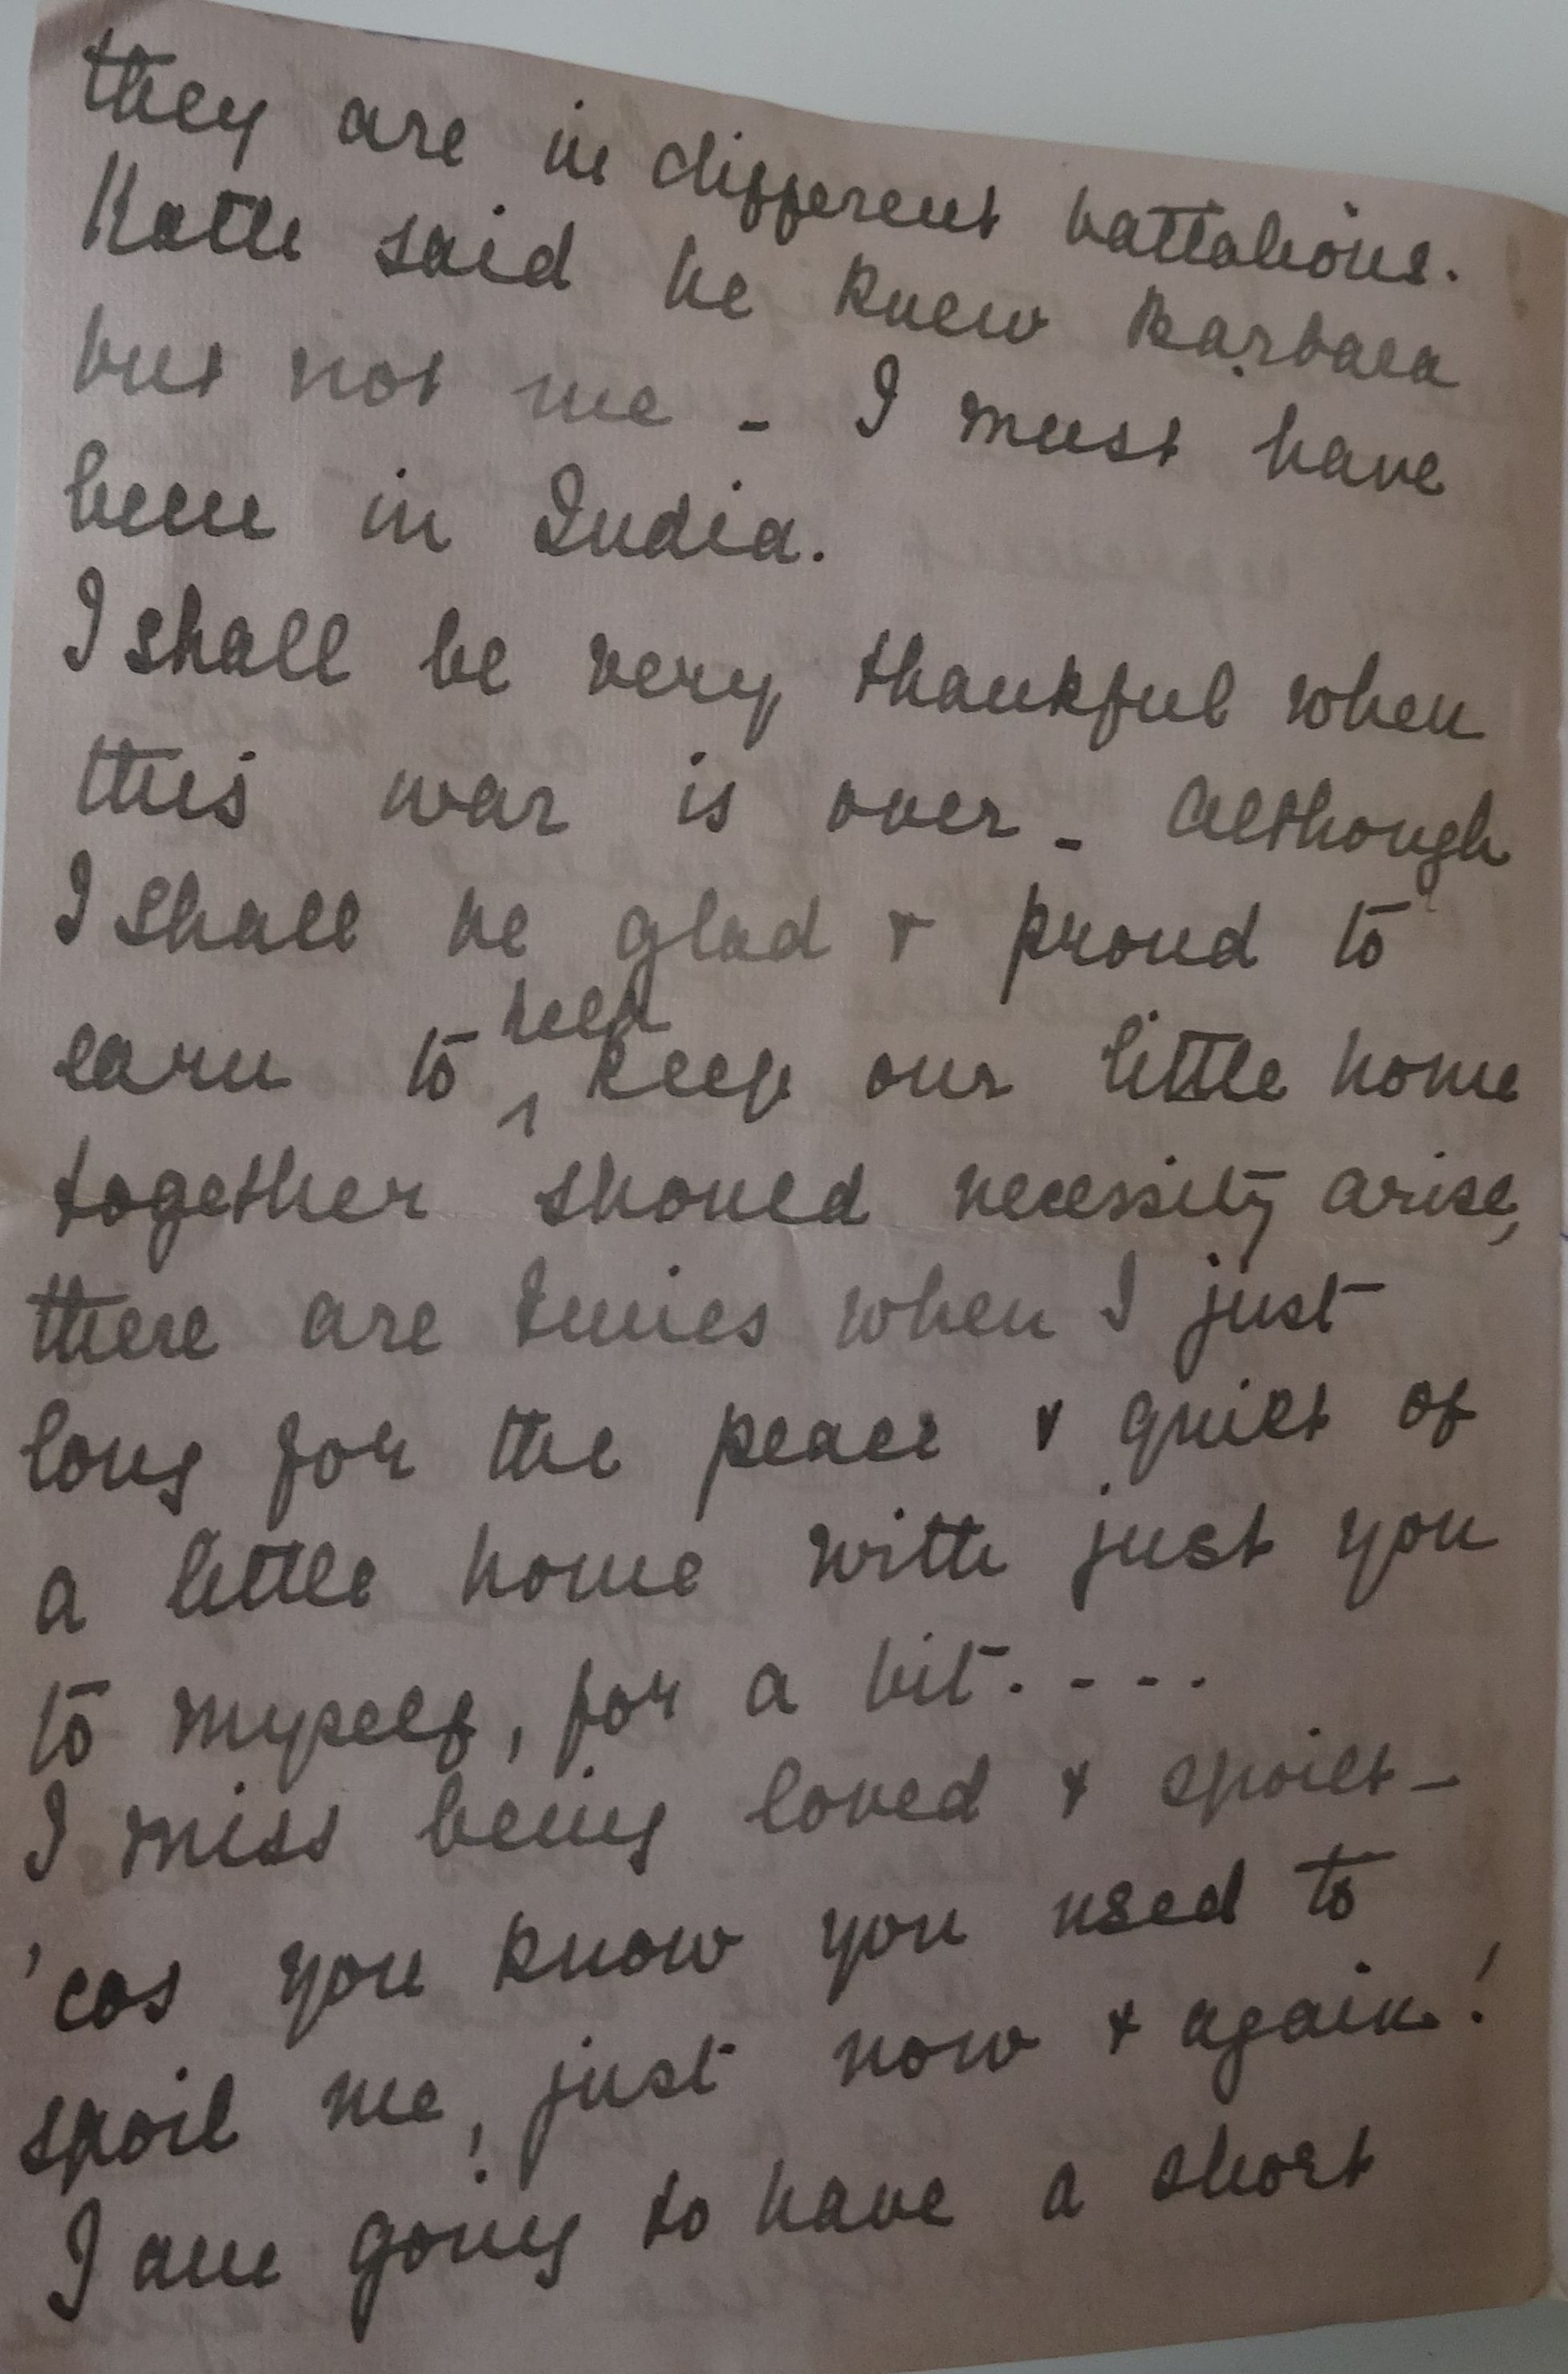 they are in different battalions.
said he knew Barbara
but not me - I must have
been in India.
I shall be very thankful when
this war is over - although
I shall be glad & proud to
help
earn to ^ keep our little home
together should necessity arise,
there are times when I just
long for the peace & quiet of
a little home with just you
to myself, for a bit. - - - .
I miss being loved & spoilt -
'cos you know you used to
spoil me, just now & again!
I am going to have a short